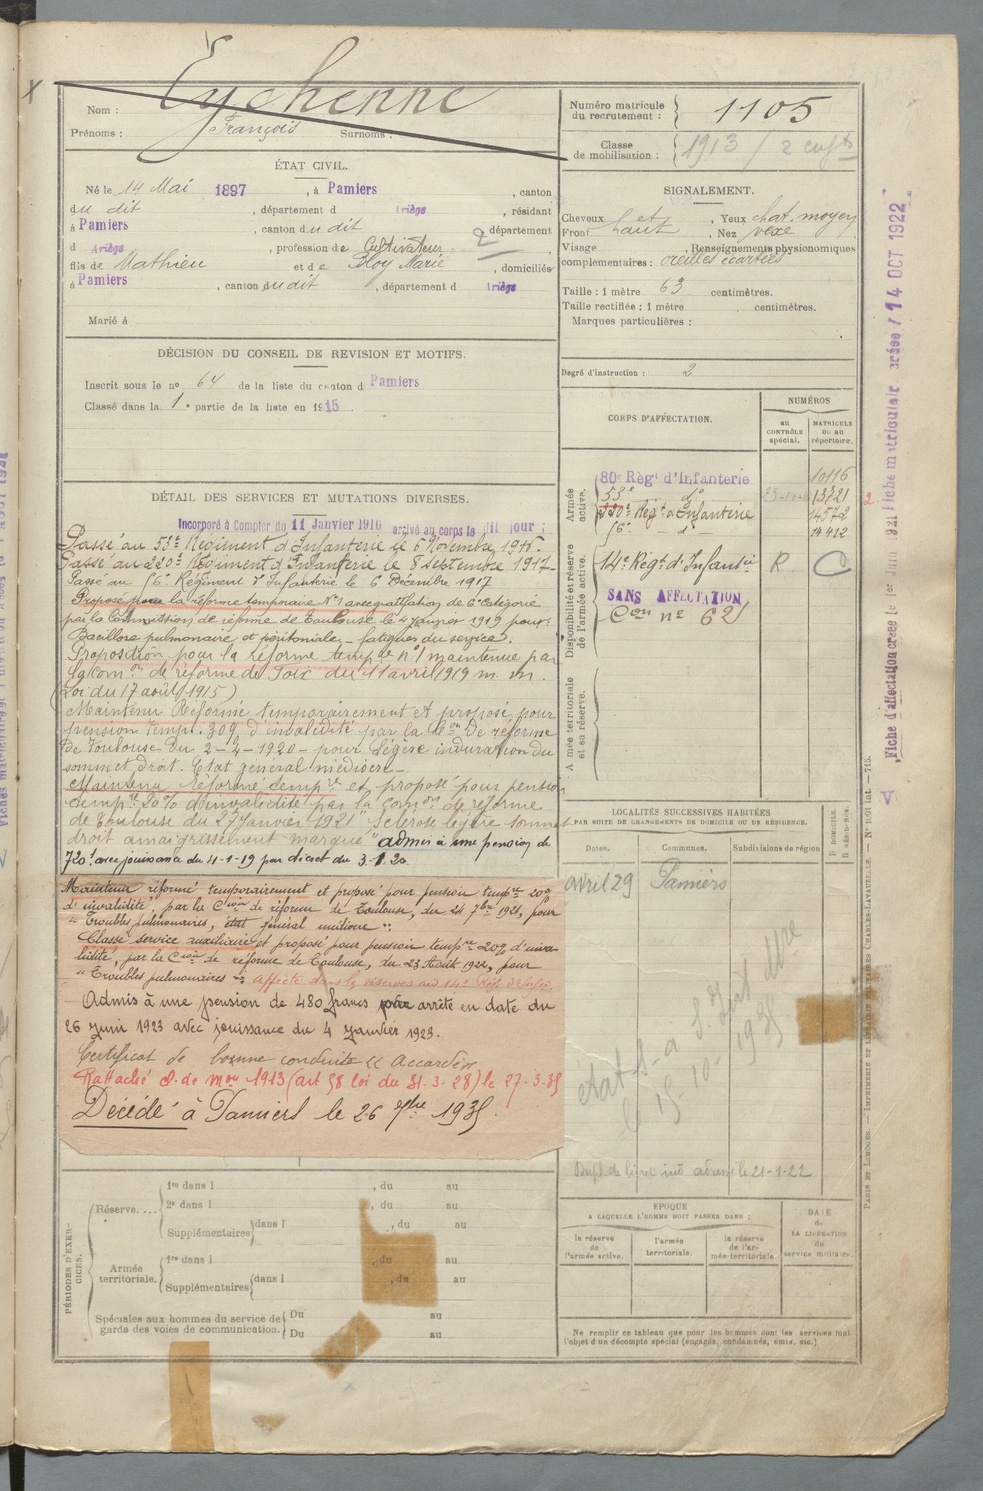 Eychenne
Nom :
Prénoms : François Surnoms :
Numéro matricule du recrutement : 1105
Classe de mobilisation : 1913 / 2 enfts
ÉTAT CIVIL.
Né le 14 Mai 1897, à Pamiers, canton
du dit, département d Ariège, résidant
à Pamiers, canton du dit, département
d Ariège, profession de Cultivateur 2
fils de Mathieu et de Bloy Marie, domiciliés
à Pamiers, canton du dit, département d Ariège
Marié à
SIGNALEMENT.
Cheveux chat, Yeux chat. moyen
Front haut, Nez vexe
Visage, Renseignements physionomiques
complémentaires : oreilles écartées
Taille : 1 mètre 63 centimètres.
Taille rectifiée : 1 mètre centimètres.
Marques particulières :
DÉCISION DU CONSEIL DE REVISION ET MOTIFS.
Inscrit sous le no 64 de la liste du canton d Pamiers
Classé dans la 1e partie de la liste en 1915
Degré d'instruction : 2
CORPS D'AFFECTATION.
NUMÉROS
au CONTRÔLE spécial.
MATRICULE OU AU répertoire.
Armée active.
80e Régt d'Infanterie 10116
53e do 13721
220e Régt d'Infanterie 14572
56e d° 14412
Disponibilité et réserve de l'armée active.
14e Régt d'Infantie R. C
SANS AFFECTATION
Con ne 621
Armée territoriale et sa réserve.
DÉTAIL DES SERVICES ET MUTATIONS DIVERSES.
Incorporé à Compter du 11 Janvier 1916 arrivé au corps le dit jour ;
Passé au 53e Régiment d'Infanterie le 6 Novembre 1916.
Passé au 220e Régiment d'Infanterie le 8 septembre 1917-
Passé au 56e Régiment d'Infanterie le 6 Décembre 1917
Proposé pour la réforme temporaire N°1 avec gratification de 6e Catégorie
par la Commission de réforme de Toulouse le 4 Janvier 1919 pour :
Bacillose pulmonaire et péritonéale - fatigues du service.
Proposition pour la réforme tempre n°1 maintenue par
la Comon de réforme de Foix du 11 avril 1919 m. m.
(Loi du 17 août 1915)
Maintenu Réformé temporairement et proposé pour
pension temp. 30% d'invalidité par la Con de réforme
de Toulouse du 2-4-1920 - pour légère induration du
sommet droit. Etat général médiocre -
Maintenu Réformé tempre et proposé pour pension
tempre 20% d'invalidité par la Comon de réforme
de Toulouse du 27 janvier 1921 "Sclérose légère sommet
droit amaigrissement marqué" admis à une pension de
720f avec jouissance du 4-1-19 par décret du 3-1-20.
Maintenu réformé temporairement et proposé pour pension tempre 20%
d'invalidité, par la Cion de réforme de Toulouse, du 24 7bre 1921, pour
"Troubles pulmonaires, état général médiocre".
Classé service auxiliaire et proposé pour pension tempre 20% d'inva-
lidité, par la Cion de réforme de Toulouse, du 23 Août 1922, pour
"Troubles pulmonaires". Affecté dans la réserve au 14e Rég. d'Infie.
Admis à une pension de 480 francs par arrêté en date du
26 juin 1923 avec jouissance du 4 janvier 1923.
Certificat de bonne conduite "Accordé"
Rattaché cl. de mon 1913 (art 58 loi du 31-3-28) le 27-3-35
Décédé à Pamiers le 26 7bre 1935.
LOCALITÉS SUCCESSIVES HABITÉES
PAR SUITE DE CHANGEMENTS DE DOMICILE OU DE RÉSIDENCE.
Dates. Communes. Subdivisions de région
D. DOMICILE. R. RÉSIDENCE.
avril 29 Pamiers
le 15-10-1935
le 21-1-22
PÉRIODES D'EXERCICES.
Réserve....
1re dans l , du au
2e dans l , du au
Supplémentaires dans l , du au
Armée territoriale.
1re dans l , du au
Supplémentaires dans l , du au
Spéciales aux hommes du service de garde des voies de communication.
Du au
Du au
EPOQUE
A LAQUELLE L'HOMME DOIT PASSER DANS :
la réserve de l'armée active.
l'armée territoriale.
la réserve de l'armée territoriale.
DATE de LA LIBÉRATION du service militaire.
Ne remplir ce tableau que pour les hommes dont les services font
l'objet d'un décompte spécial (engagés, condamnés, omis, etc.)
Fiche d'affectation créée le 1er Juin 1921 Fiche matriculaire créée / 14 OCT 1922
PARIS ET LIMOGES. — IMPRIMERIE ET LIBRAIRIE MILITAIRES CHARLES-LAVAUZELLE.